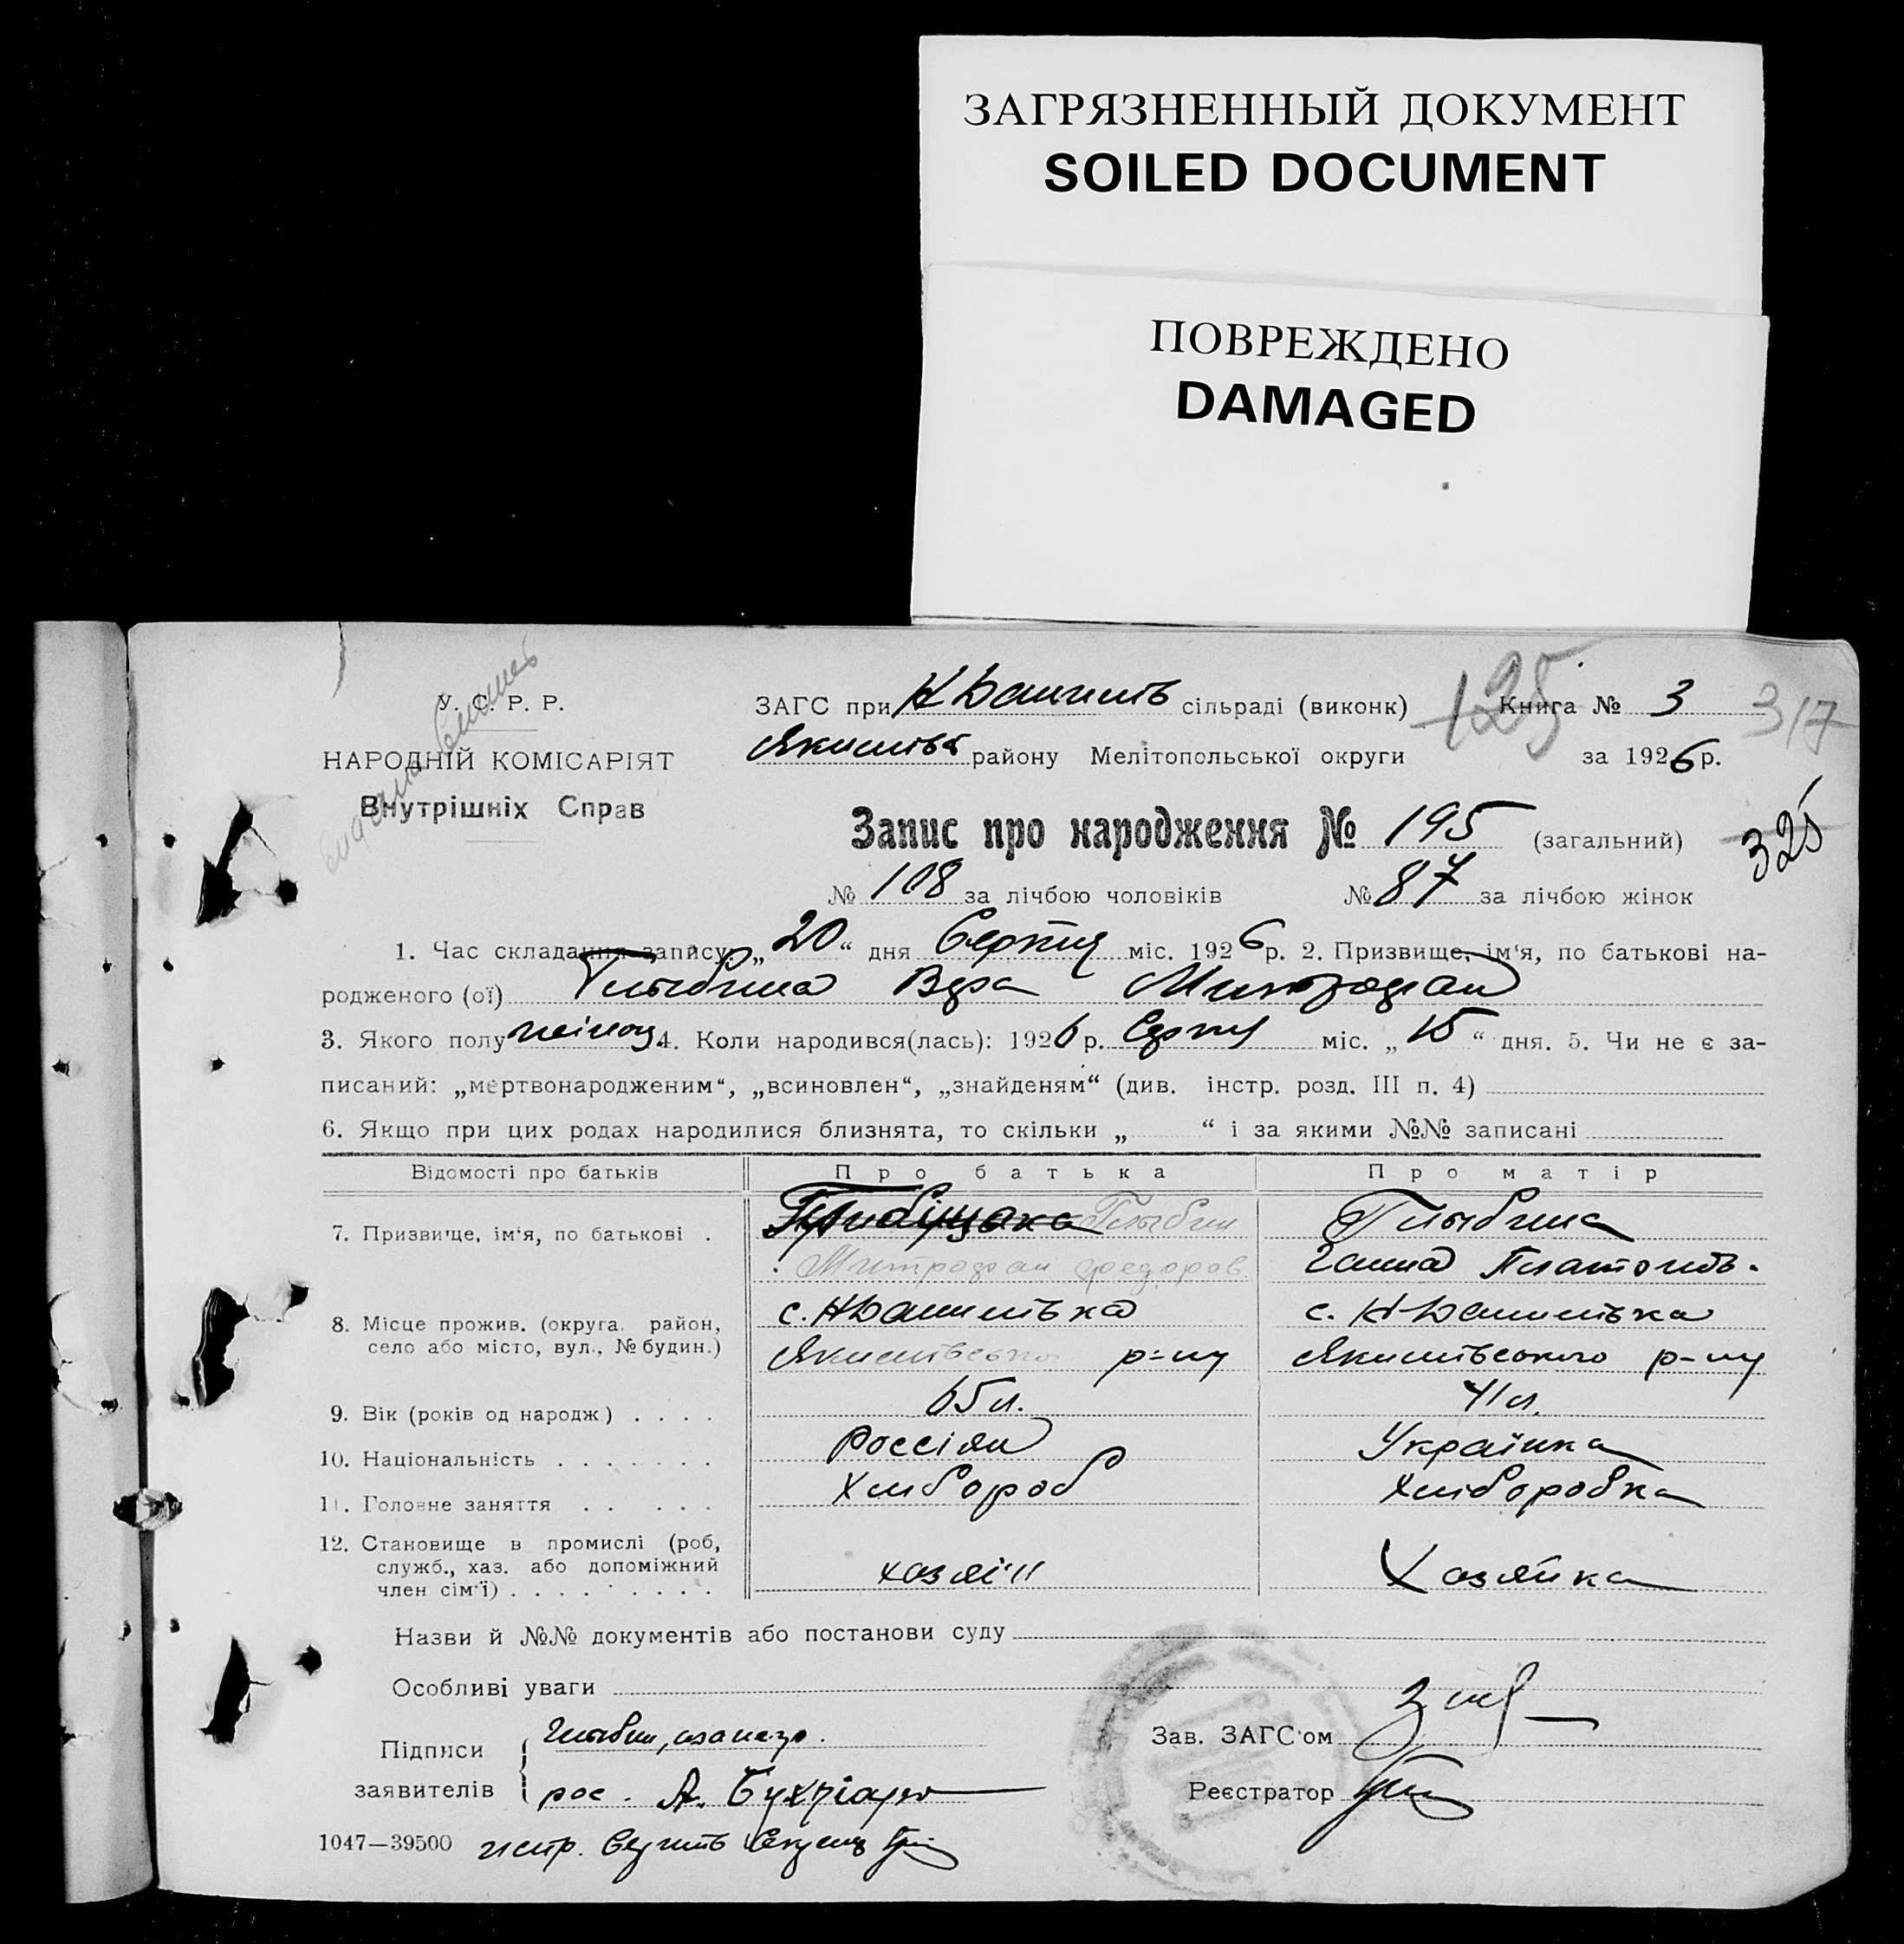 ЗАГРЯЗНЕННЫЙ ДОКУМЕНТ
SOILED DOCUMENT
ПОВРЕЖДЕНО
DAMAGED
125
317
325
У. С. Р. Р.
НАРОДНІЙ КОМІСАРІЯТ
Внутрішніх Справ
ЗАГС при сільраді (виконк) Книга № 3
району Мелітопольської округи за 1926 р.
Запис про народження № 195 (загальний)
№ 108 за лічбою чоловіків № 87 за лічбою жінок
1. Час складання запису: „20“ дня Серпня міс. 1926 р. 2. Призвище, ім'я, по батькові на-
родженого (ої) Глыбина Вера Митрофан
3. Якого полу жіноч. 4. Коли народився(лась): 1926 р. Серпня міс. „15“ дня. 5. Чи не є за-
писаний: „мертвонародженим“, „всиновлен“, „знайденям“ (див. інстр. розд. III п. 4)
6. Якщо при цих родах народилися близнята, то скільки „ “ і за якими №№ записані
Відомості про батьків Про батька Про матір
7. Призвище, ім'я, по батькові . Глыбин Глыбина
Митрофан Федоров Ганна Платонів.
8. Місце прожив. (округа район, с. Н Данилівка с. Н-Данилівка
село або місто, вул., № будин.) Якимівсько р-ну Якимівського р-ну
9. Вік (років од народж) . . . . 65 л. 41 л.
10. Національність . . . . . . . Россіян Українка
11. Головне заняття . . . . . Хлібороб Хліборобка
12. Становище в промислі (роб, служб., хаз. або допоміжний член сім'ї) . . . . . . . . . хазяїн Хазяйка
Назви й №№ документів або постанови суду
Особливі уваги
Підписи заявителів
Глыбин, а за него
рос. А.
Зав. ЗАГС'ом
Реєстратор
1047—39500